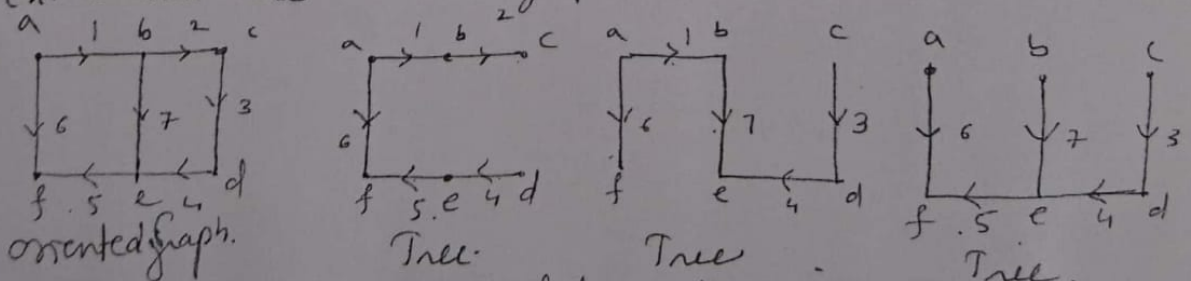 a 1 b 2 c
6 7 3
f 5 e 4 d
oriented graph.
a 1 b 2 c
6
f 5 e 4 d
Tree.
a 1 b c
6 7 3
f e 4 d
Tree
a b c
6 7 3
f 5 e 4 d
Tree